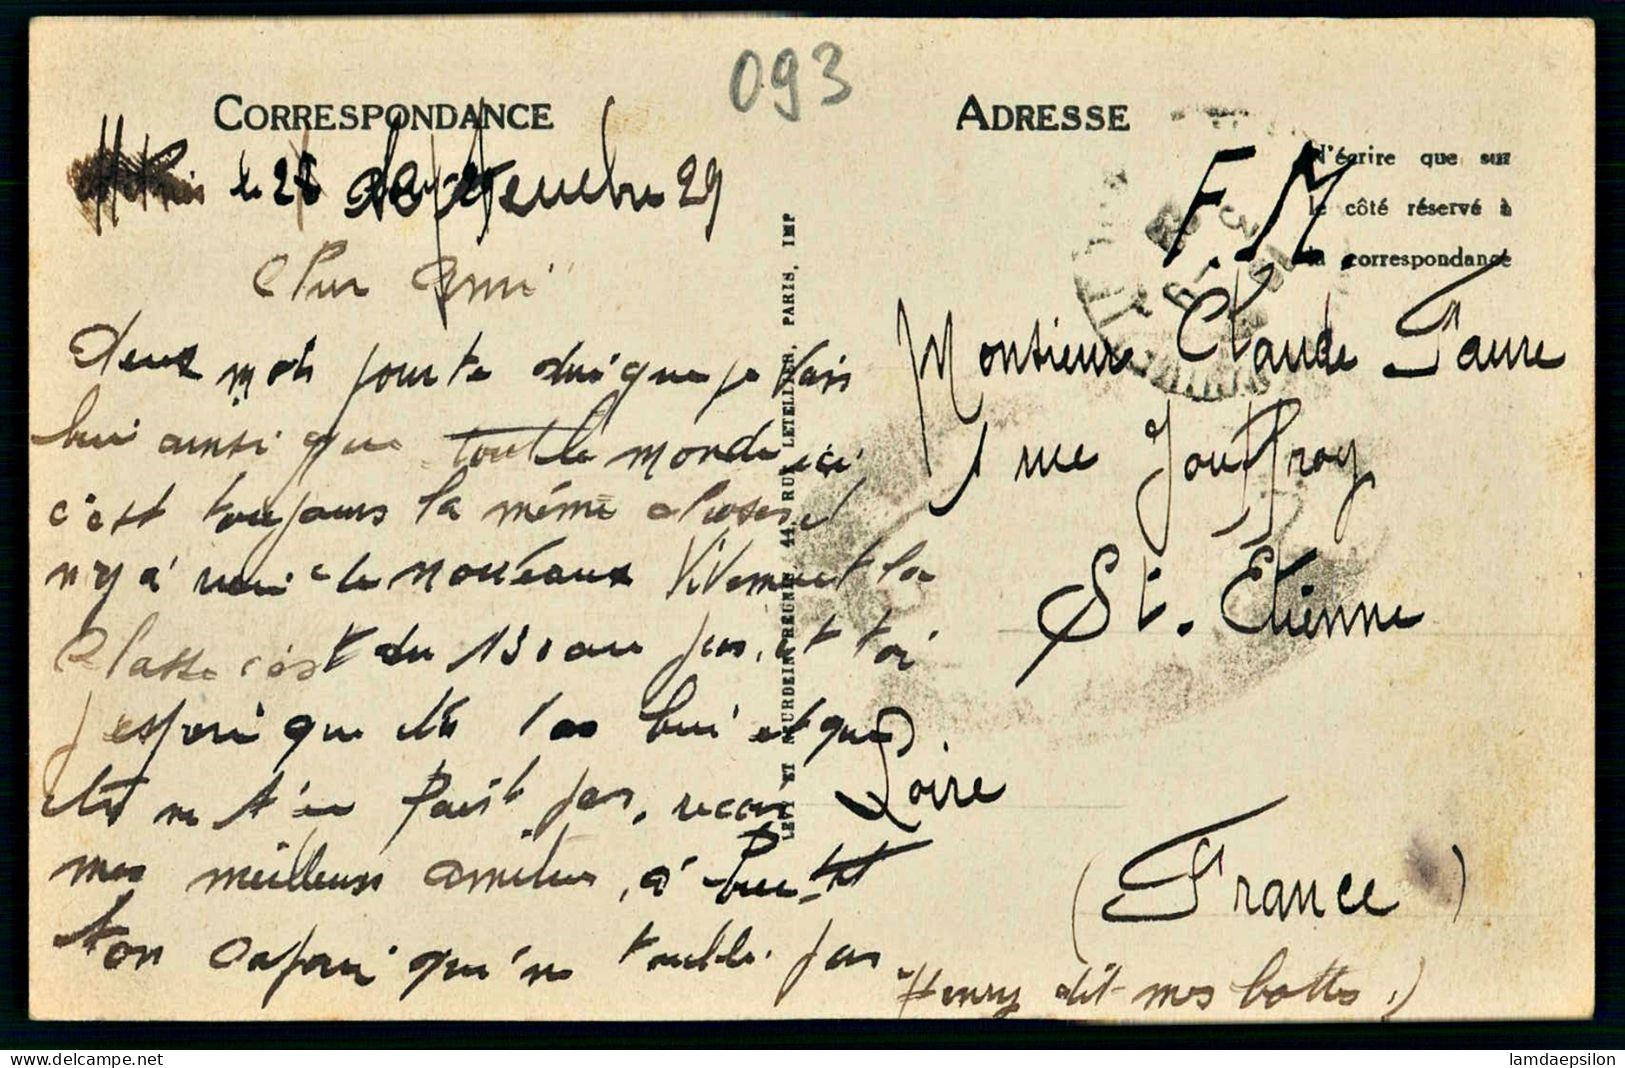 093
CORRESPONDANCE
le 28 Septembre 29
Cher Ami
deux mots pour te dire que je vais
bien ainsi que tout le monde ici
c'est toujours la même choses il
n'y á rien de nouveaux Vivement la
Classe c'est du 130 au jus, et toi
j'espère que tu vas bien et que
tu ne t'en fait pas, reçois
mes meilleurs amitiés, á
ton copain qui ne t'oublie pas
Henry dit mes bottes.)
LEVY ET NEURDEIN REUNIS, 44, RUE LETELLIER, PARIS, IMP
ADRESSE
N'écrire que sur
le côté réservé à
la correspondance
F. M.
Monsieur Claude Faure
1 rue Jouffroy
St. Etienne
Loire
(France)
lamdaepsilon
delcampe.net